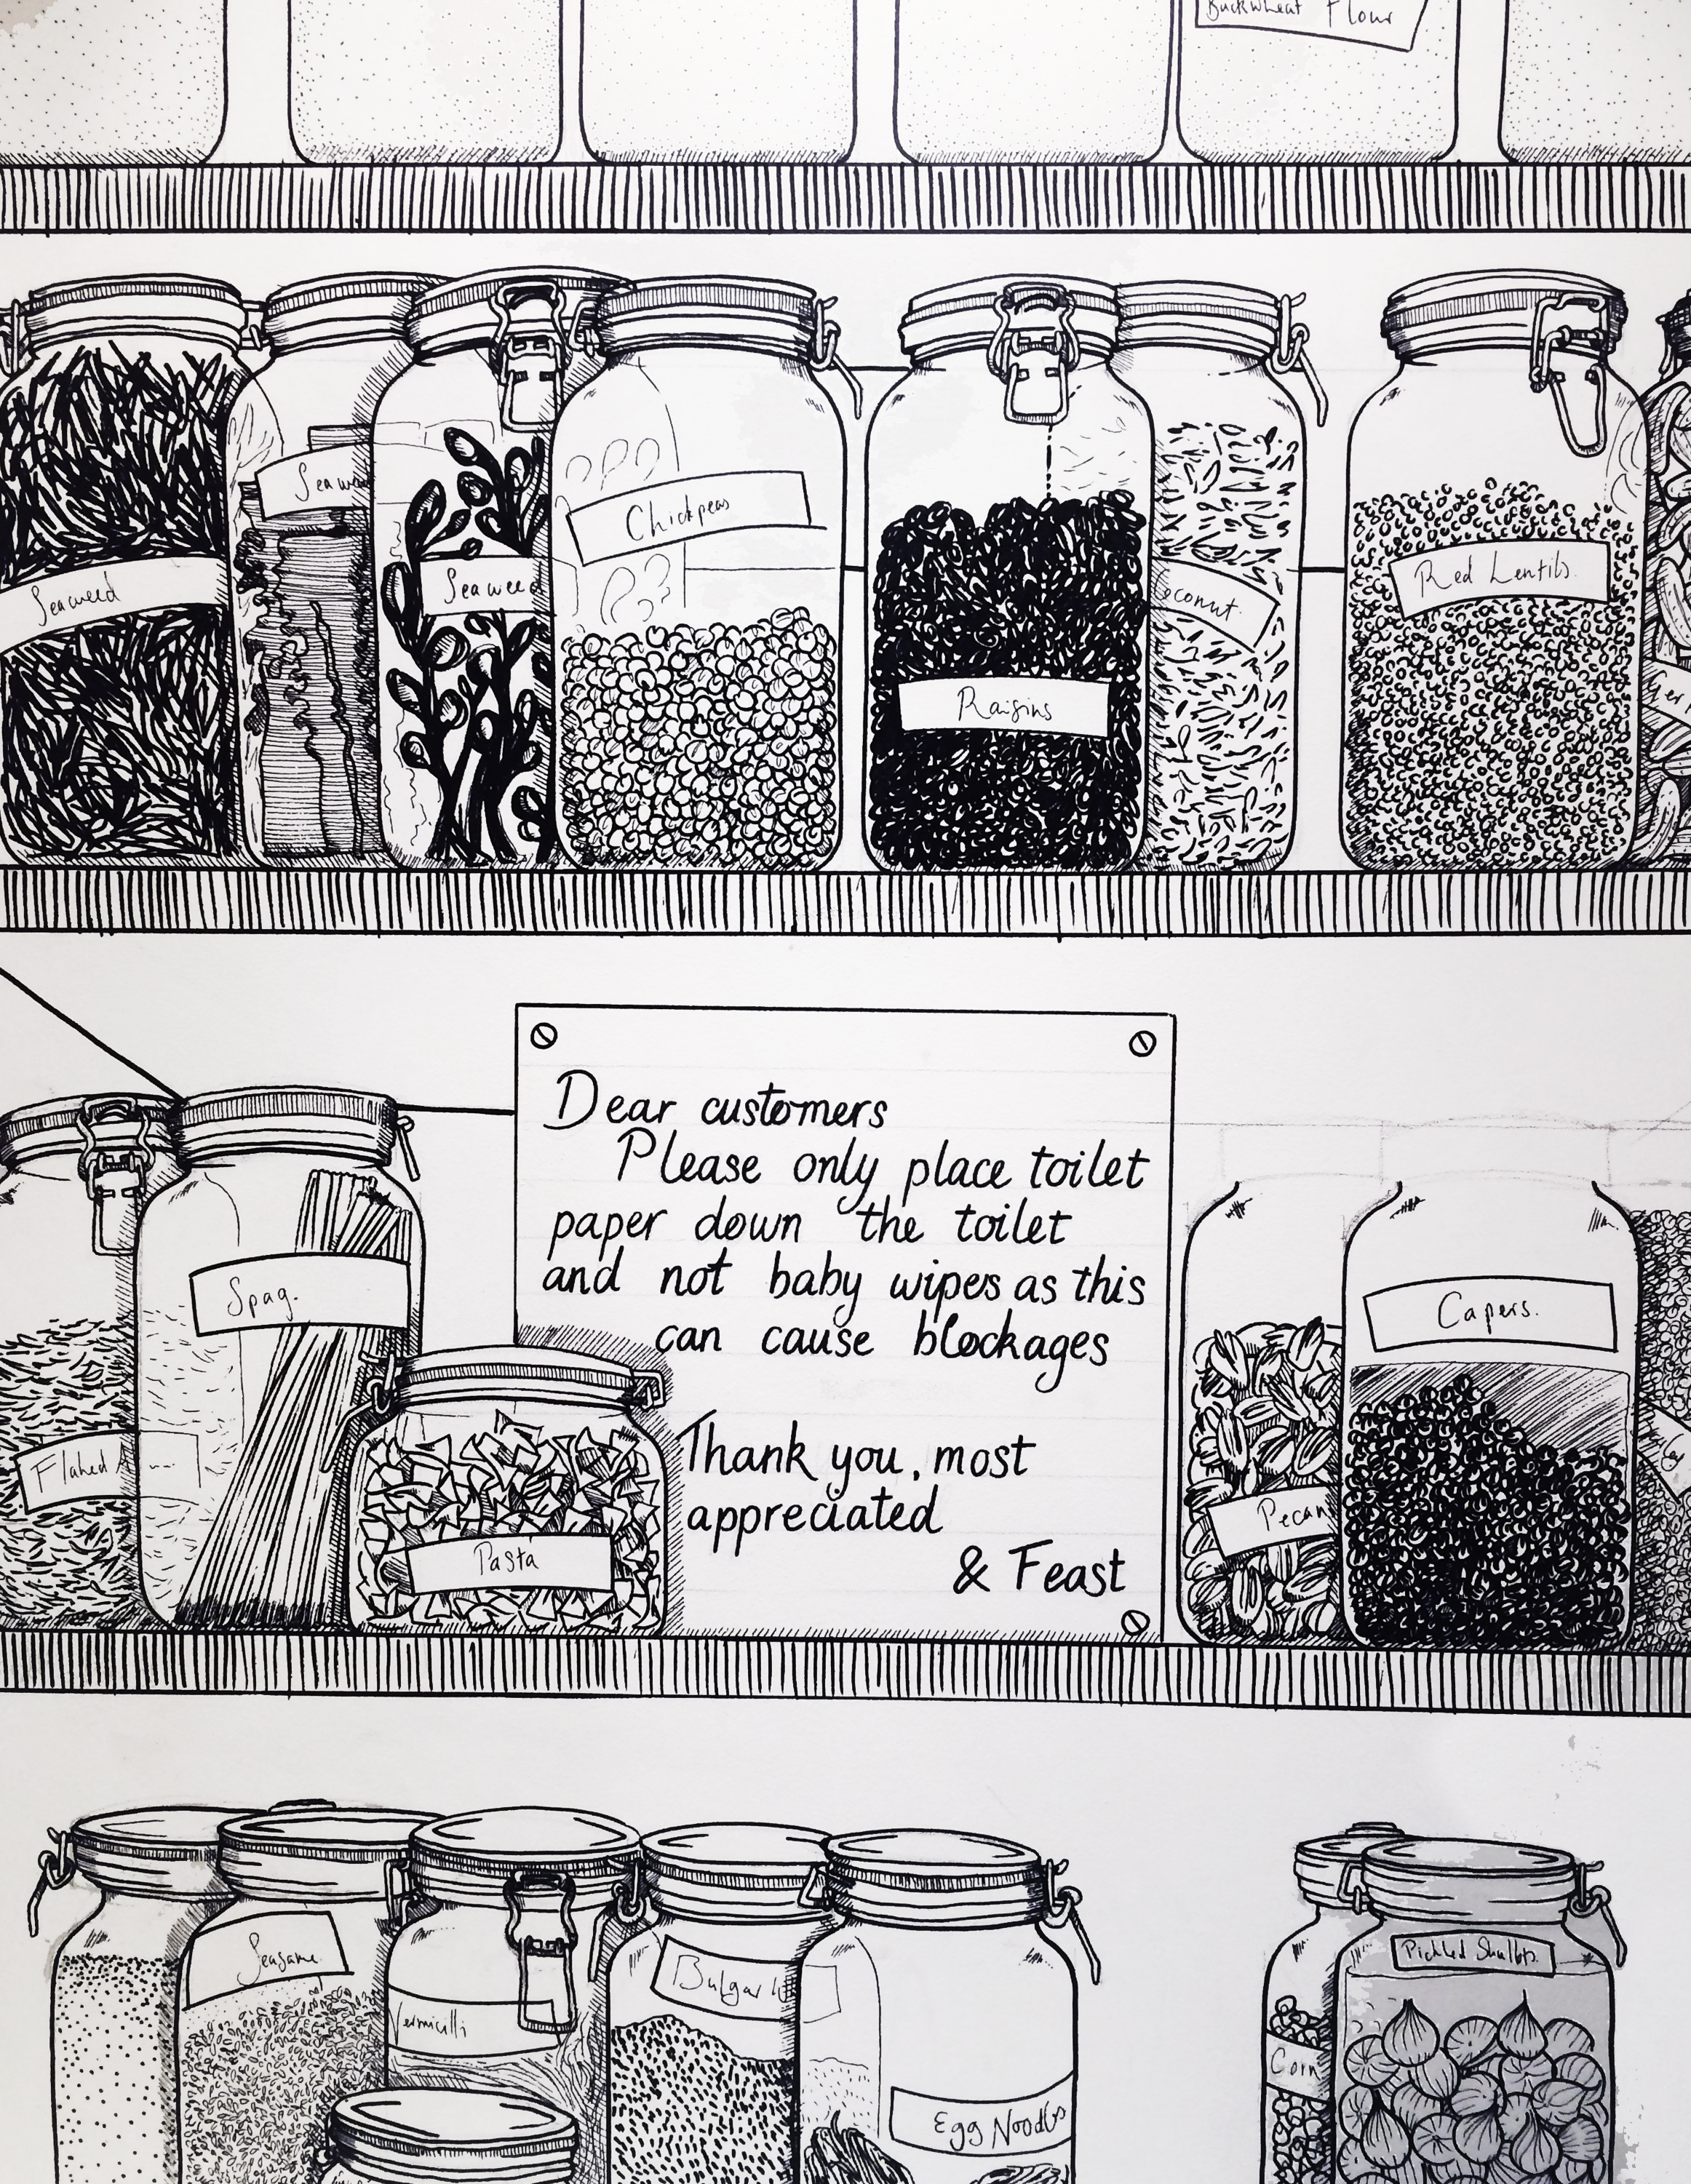 Buckwheat Flour
Seaweed
Seaweed
Chickpeas
Raisins
Red Lentils.
Dear customers
Please only place toilet
paper down the toilet
and not baby wipes as this
can cause blockages
Thank you, most
appreciated
& Feast
Spag.
Flaked
Pasta
Pecan
Capers.
Seasame
Vermicilli
Bulgar
Egg Noodles
Corn
Pickled